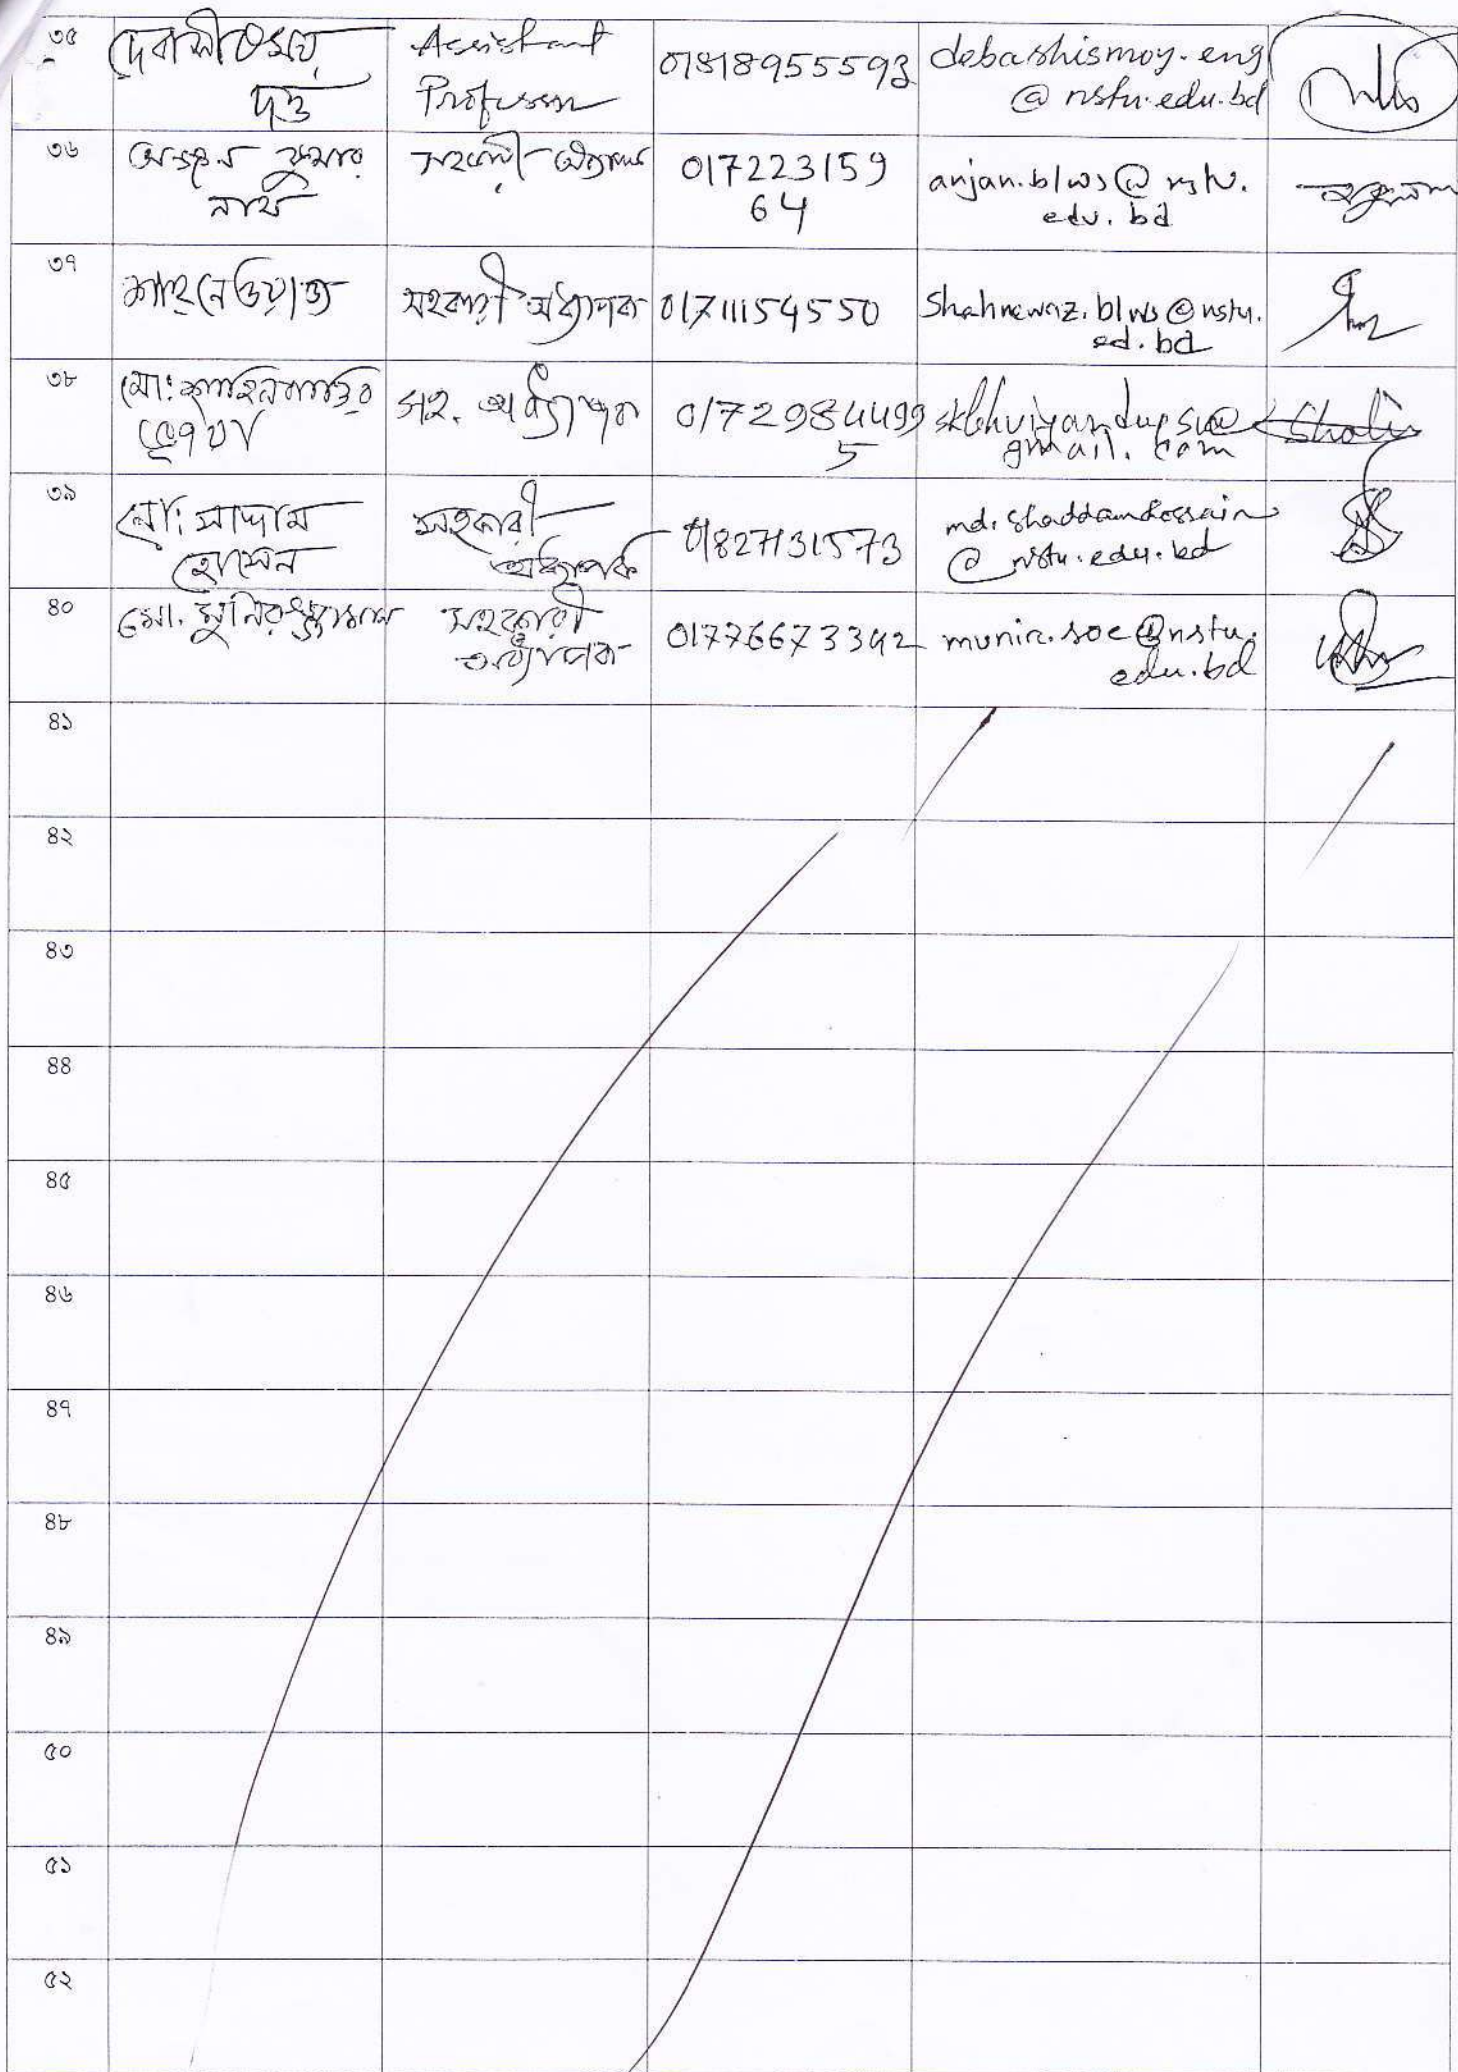 ৩৫ দেবাশীষ ময় দত্ত Assistant Professor 01818955593 debashismoy.eng@nstu.edu.bd
৩৬ অঞ্জন কুমার নাথ সহকারী অধ্যাপক 01722315964 anjan.blws@nstu.edu.bd
৩৭ শাহনেওয়াজ সহকারী অধ্যাপক 01711154550 Shahnewaz.blws@nstu.ed.bd
৩৮ মো: ভূঁঞা সহ. অধ্যাপক 01729844995 gmail.com
৩৯ মো: সাদ্দাম হোসেন সহকারী অধ্যাপক 01827131573 md.shaddamhossain@nstu.edu.bd
৪০ মো. মুনিরুজ্জামান সহকারী অধ্যাপক 01776673342 munir.soc@nstu.edu.bd
৪১
৪২
৪৩
৪৪
৪৫
৪৬
৪৭
৪৮
৪৯
৫০
৫১
৫২